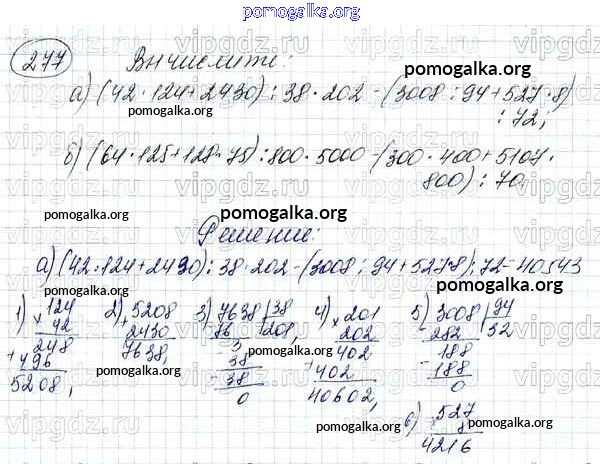 pomogalka.org
277 Вычислите:
pomogalka.org
а) (42·124+2430):38·202-(3008:94+527·8)
pomogalka.org
:72;
б) (64·125+128·75):800·5000-(300·400+5107·
800):70.
pomogalka.org pomogalka.org pomogalka.org
Решение:
а) (42·124+2430):38·202-(3008:94+527·8):72=40543
pomogalka.org pomogalka.org
1) 124 2) 5208 3) 7638 38 4) 201 5) 3008 94
× 42 + 2430 76 201, × 202 - 282 32
248 7638, 3 402 188
+ 496 38 + 402 - 188
5208, - 38 40602, 0
0
pomogalka.org
6) 527
8
4216
pomogalka.org pomogalka.org
vipgdz.ru vipgdz.ru vipgdz.ru vipgdz.ru